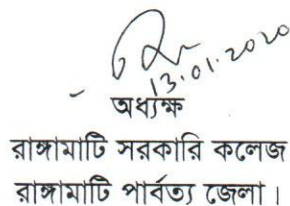 13.01.2020
অধ্যক্ষ
রাঙ্গামাটি সরকারি কলেজ
রাঙ্গামাটি পার্বত্য জেলা।